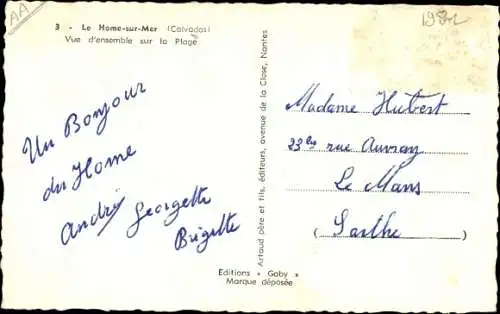 AA
3 - Le Home-sur-Mer (Calvados)
Vue d'ensemble sur la Plage
Un Bonjour
du Home
André Georgette
Brigitte
Artaud père et fils, éditeurs, avenue de la Close, Nantes
Editions « Gaby »
Marque déposée
Madame Hubert
23 bis rue Auvray
Le Mans
(Sarthe)